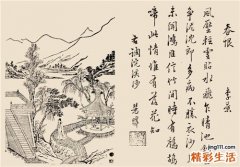 春恨
風壓輕雲貼水飛乍晴池館燕
爭泥沈郎多病不勝衣沙上
未聞鴻雁信竹間時有鷓鴣
啼此情惟有落花知
精彩生活